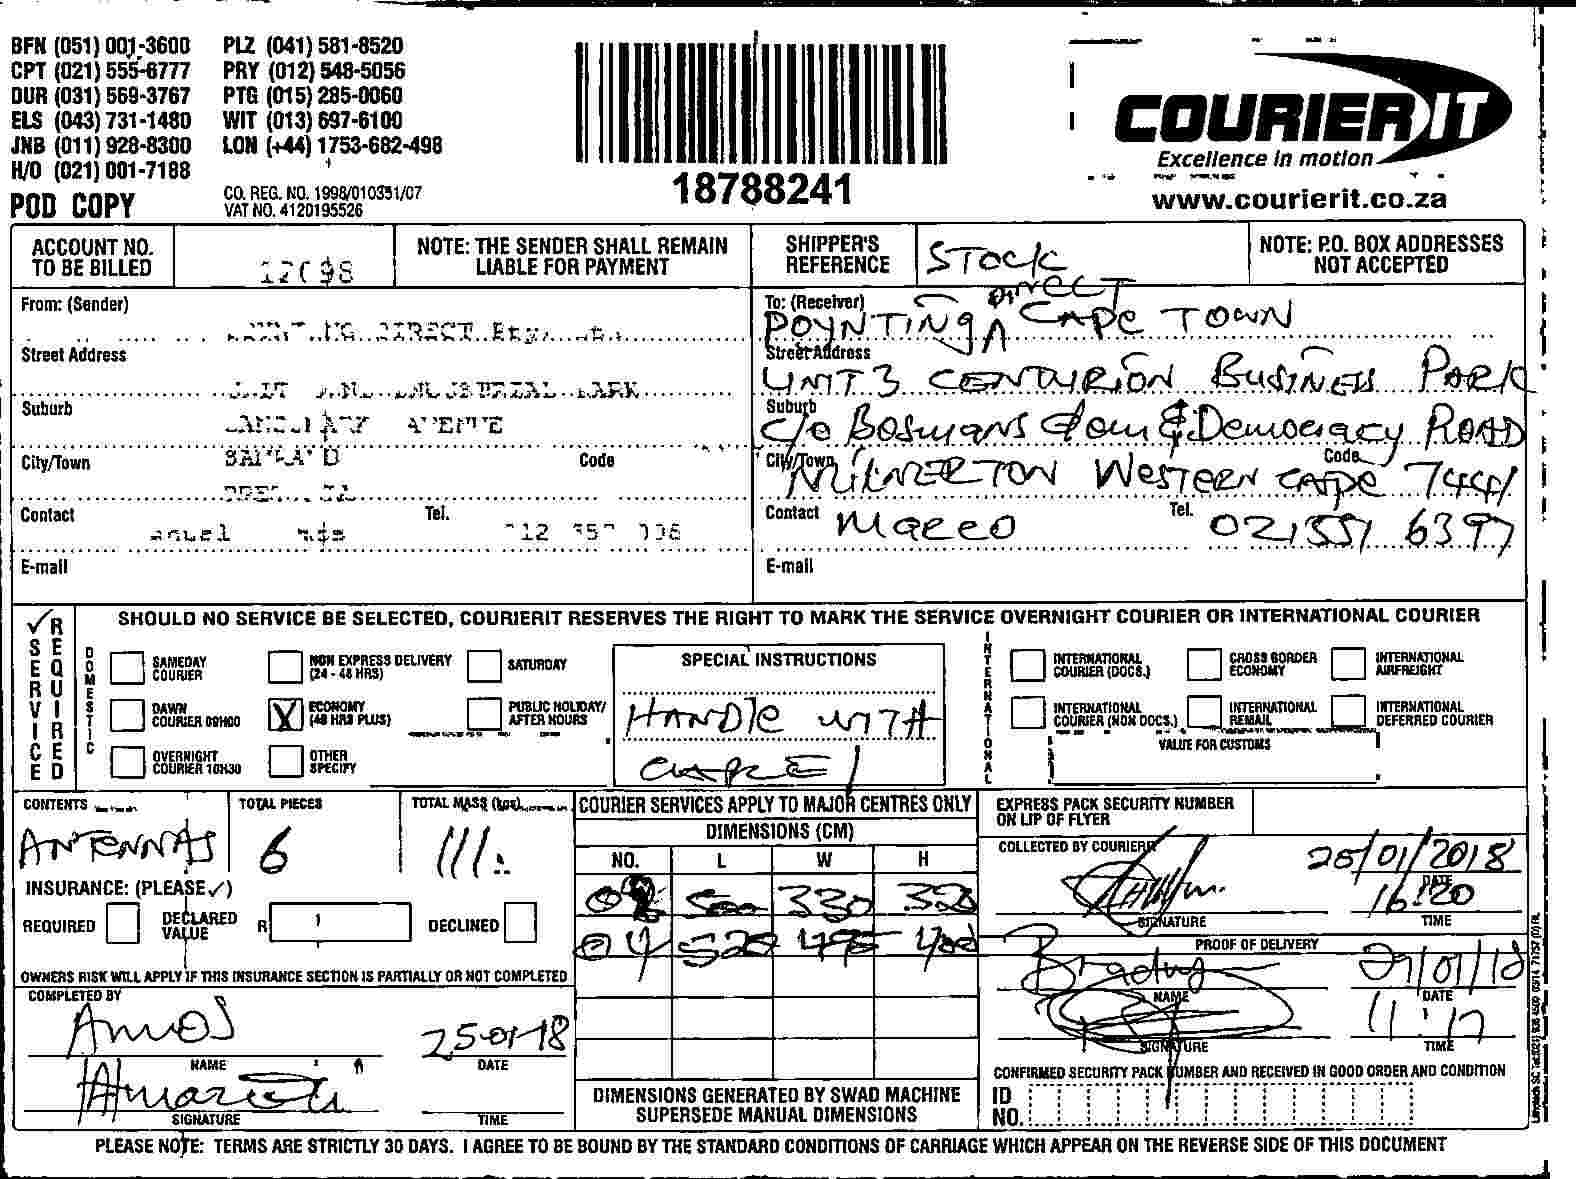 BFN (051) 001-3600 PLZ (041) 581-8520
CPT (021) 555-6777 PRY (012) 548-5056
DUR (031) 569-3767 PTG (015) 285-0060
ELS (043) 731-1480 WIT (013) 697-6100
JNB (011) 928-8300 LON (+44) 1753-682-498
H/O (021) 001-7188
POD COPY
CO. REG. NO. 1998/010351/07
VAT NO. 4120195526
18788241
COURIER IT
Excellence in motion
www.courierit.co.za
ACCOUNT NO. TO BE BILLED
NOTE: THE SENDER SHALL REMAIN LIABLE FOR PAYMENT
SHIPPER'S REFERENCE
STOCK
NOTE: P.O. BOX ADDRESSES NOT ACCEPTED
From: (Sender)
DIRECT
Street Address
PARK
Suburb
City/Town
Code
Contact
Tel.
E-mail
To: (Receiver)
POYNTING DIRECT CAPE TOWN
Street Address
UNIT 3 CENTURION BUSINESS PARK
Suburb
C/o Bosmans dam & Democracy ROAD
City/Town
Code
MILNERTON WESTERN CAPE 7441
Contact
Marco
Tel.
021 551 6397
E-mail
✓ SERVICE REQUIRED
SHOULD NO SERVICE BE SELECTED, COURIERIT RESERVES THE RIGHT TO MARK THE SERVICE OVERNIGHT COURIER OR INTERNATIONAL COURIER
DOMESTIC
SAMEDAY COURIER
NON EXPRESS DELIVERY (24 - 48 HRS)
SATURDAY
DAWN COURIER 09H00
X ECONOMY (48 HRS PLUS)
PUBLIC HOLIDAY/ AFTER HOURS
OVERNIGHT COURIER 10H30
OTHER SPECIFY
SPECIAL INSTRUCTIONS
HANDLE WITH
CARE!
INTERNATIONAL
INTERNATIONAL COURIER (DOCS.)
CROSS BORDER ECONOMY
INTERNATIONAL AIRFREIGHT
INTERNATIONAL COURIER (NON DOCS.)
INTERNATIONAL REMAIL
INTERNATIONAL DEFERRED COURIER
VALUE FOR CUSTOMS
CONTENTS
ANTENNAS
TOTAL PIECES
6
TOTAL MASS (kgs)
111
INSURANCE: (PLEASE ✓)
REQUIRED
DECLARED VALUE
R
DECLINED
OWNERS RISK WILL APPLY IF THIS INSURANCE SECTION IS PARTIALLY OR NOT COMPLETED
COMPLETED BY
Amos
25-01-18
NAME
DATE
SIGNATURE
TIME
COURIER SERVICES APPLY TO MAJOR CENTRES ONLY
DIMENSIONS (CM)
NO. L W H
500 330 320
04 520
DIMENSIONS GENERATED BY SWAD MACHINE
SUPERSEDE MANUAL DIMENSIONS
EXPRESS PACK SECURITY NUMBER
ON LIP OF FLYER
COLLECTED BY COURIERIT
25/01/2018
DATE
16:20
SIGNATURE
TIME
PROOF OF DELIVERY
29/01/18
NAME
DATE
11:17
SIGNATURE
TIME
CONFIRMED SECURITY PACK NUMBER AND RECEIVED IN GOOD ORDER AND CONDITION
ID NO.
PLEASE NOTE: TERMS ARE STRICTLY 30 DAYS. I AGREE TO BE BOUND BY THE STANDARD CONDITIONS OF CARRIAGE WHICH APPEAR ON THE REVERSE SIDE OF THIS DOCUMENT